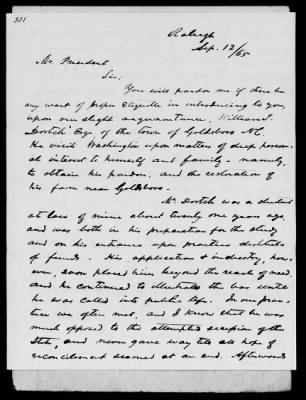 331
Raleigh
Sep. 12/65
Mr. President
Sir,
You will pardon me if there be
any want of proper Etiquette in introducing to you,
upon our slight acquaintance, William T.
Dortch Esqr. of the town of Goldsboro N.C.
He visits Washington upon matters of deep person-
al interest to himself and family - namely,
to obtain his pardon, and the restoration of
his farm near Goldsboro -
Mr. Dortch was a student
at law of mine about twenty one years ago,
and was both in his preparation for the study
and on his entrance upon practice destitute
of funds. His application & industry, how-
ever, soon placed him beyond the reach of need.
and he continued to illustrate the bar until
he was called into public life. In our prac-
tice we often met, and I know that he was
much opposed to the attempted secession of the
State, and never gave way till all hope of
reconcilement seemed at an end. Afterwards